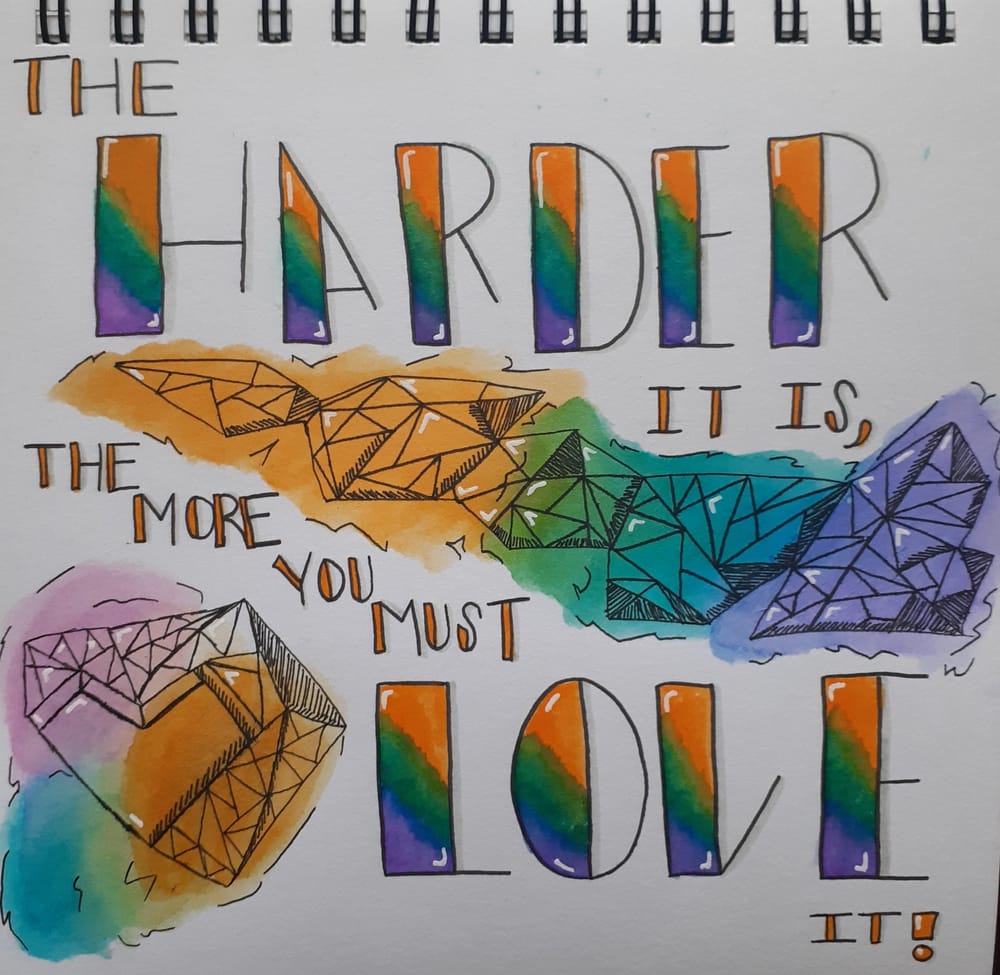 THE
HARDER
IT IS,
THE
MORE
YOU
MUST
LOVE
IT!